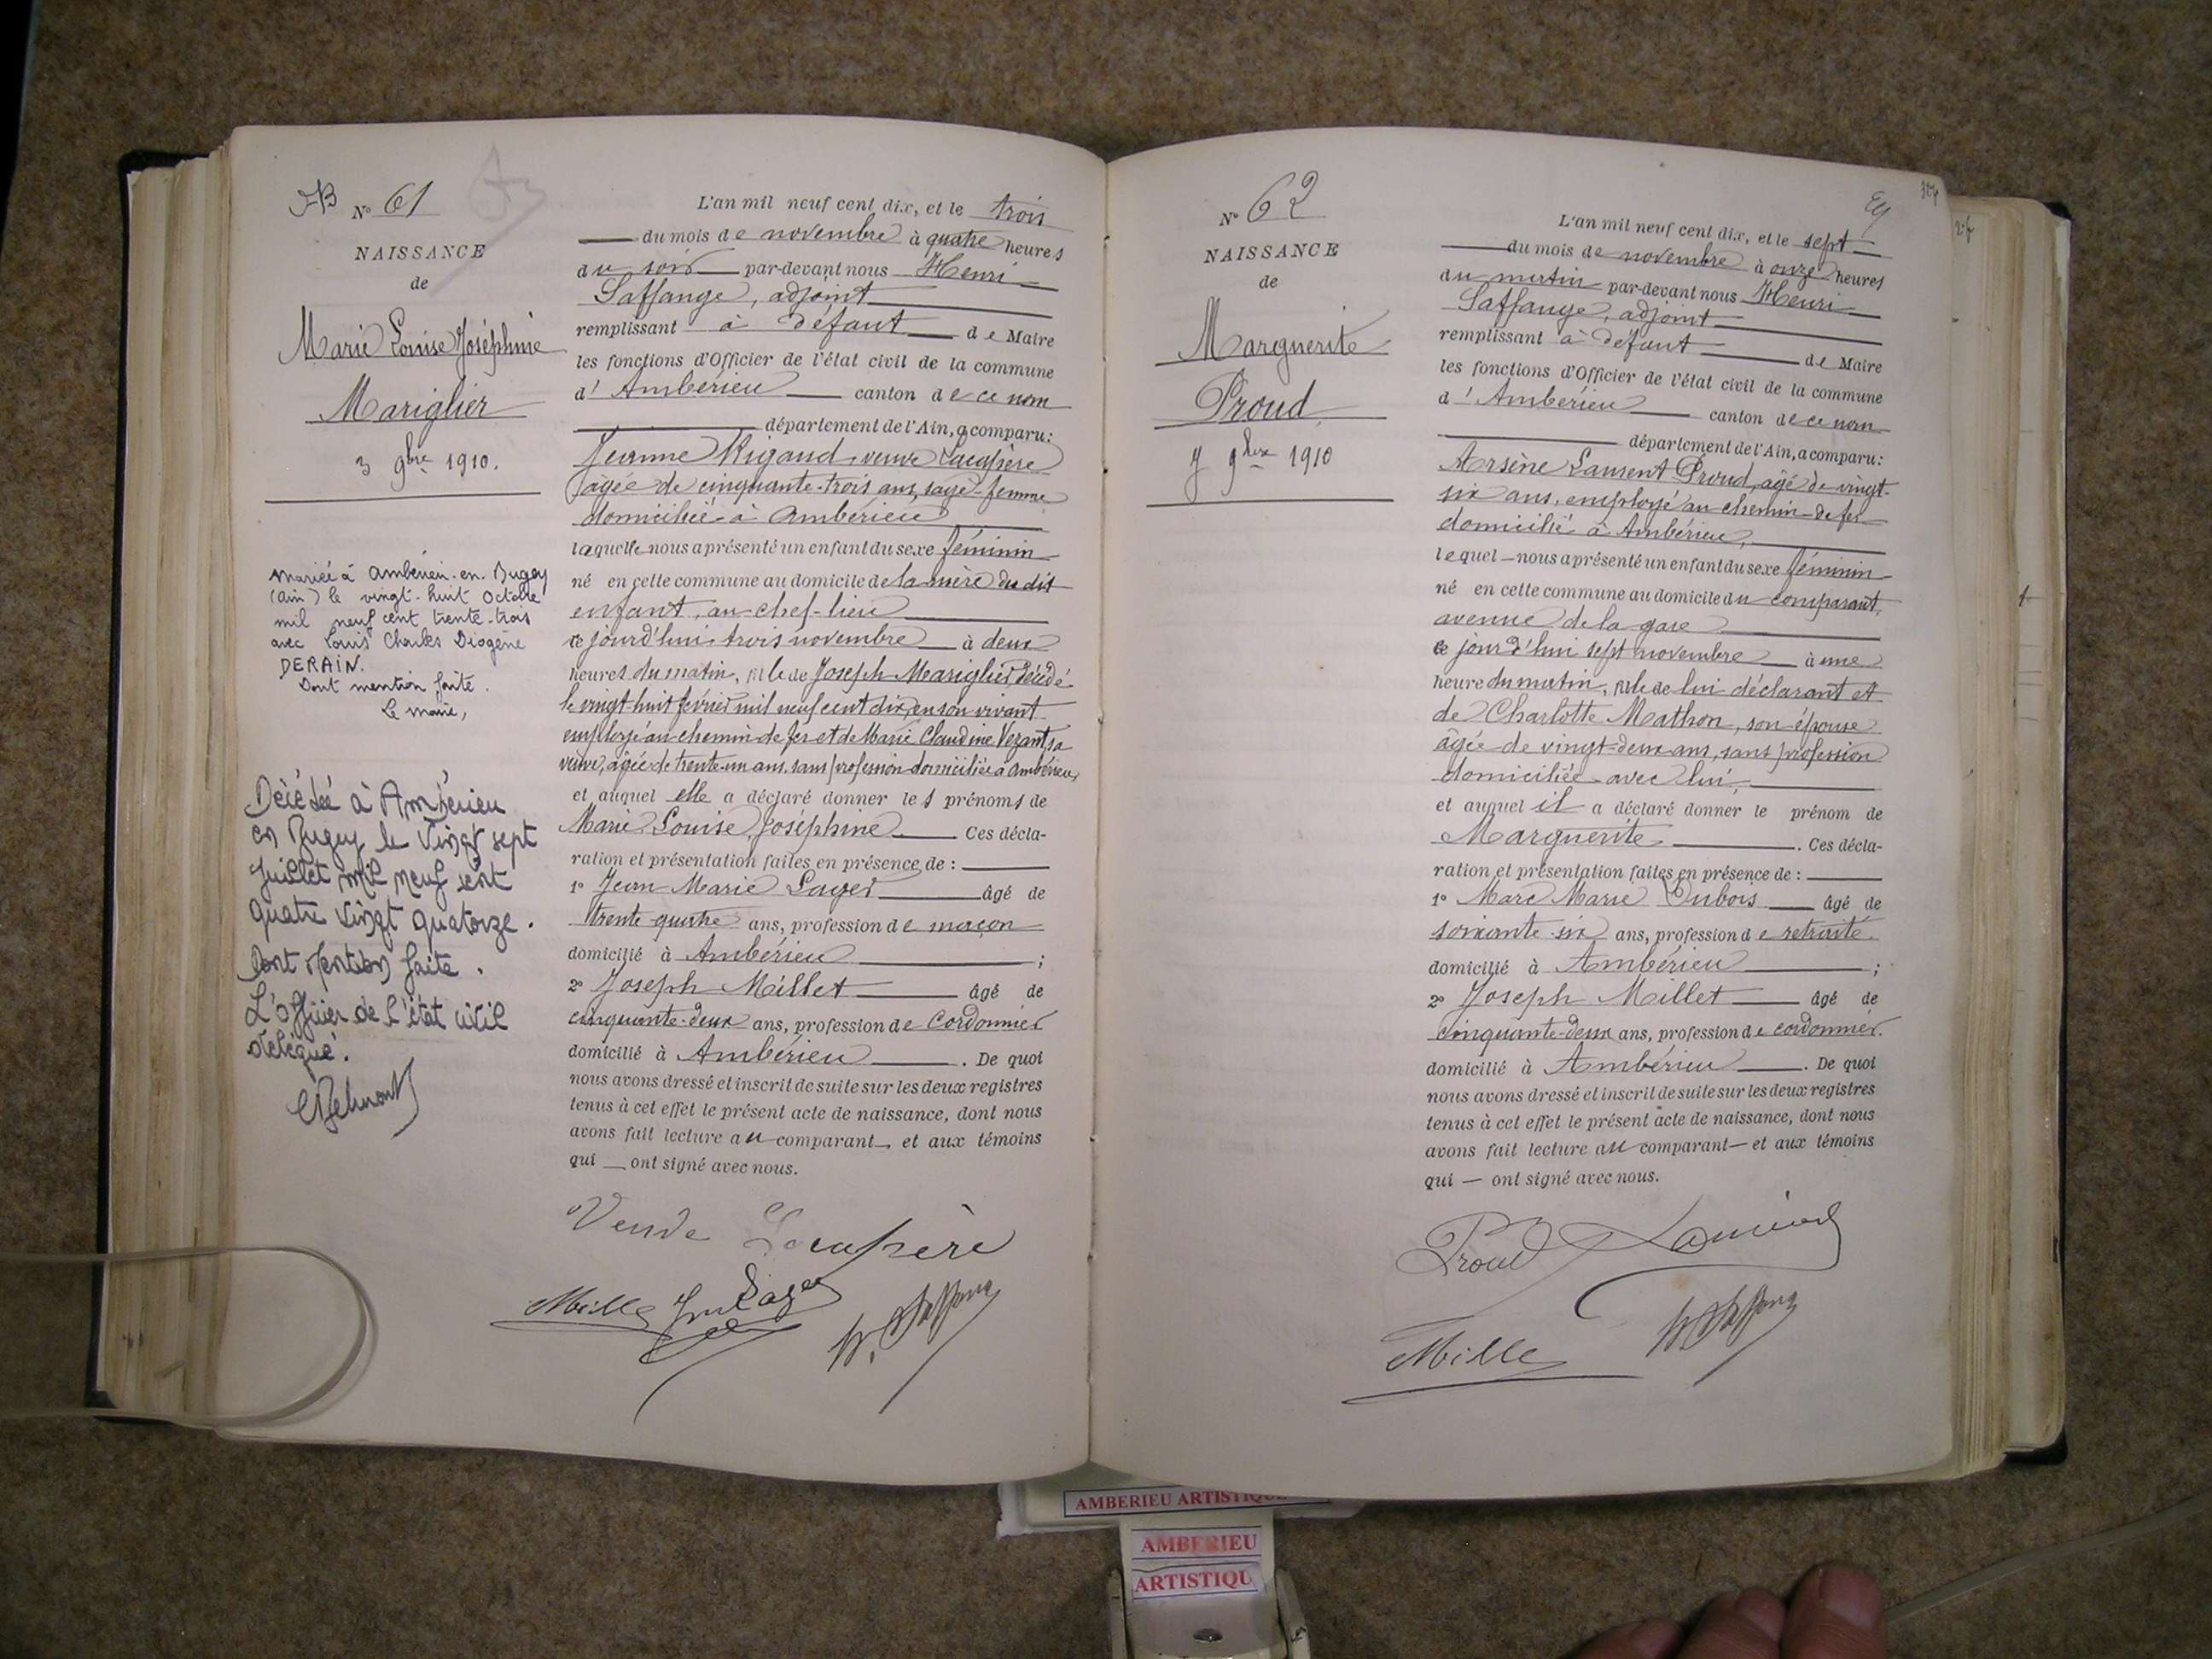 N° 61
NAISSANCE
de
Marie Louise Joséphine
Mariglier
3 9bre 1910.
mariée à Ambérieu-en-Bugey
(Ain) le vingt-huit Octobre
mil neuf cent trente-trois
avec Louis Charles Diogène
DERAIN.
Dont mention faite.
Le maire,
Décédée à Ambérieu
en Bugey le Vingt sept
Juillet mil neuf cent
quatre vingt quatorze.
Dont mention faite.
L'officier de l'état civil
délégué.
L'an mil neuf cent dix, et le trois
du mois de novembre à quatre heures
du soir par-devant nous Henri
Saffange, adjoint
remplissant à défaut de Maire
les fonctions d'Officier de l'état civil de la commune
d'Ambérieu canton de ce nom
département de l'Ain, a comparu:
Jeanne Rigaud, veuve Lacapère
âgée de cinquante-trois ans, sage-femme
domiciliée à Ambérieu
laquelle nous a présenté un enfant du sexe féminin
né en cette commune au domicile de la mère du dit
enfant, au chef-lieu
ce jourd'hui trois novembre à deux
heures du matin, fille de Joseph Mariglier, décédé
le vingt huit février mil neuf cent dix, en son vivant
employé au chemin de fer et de Marie Claudine Vezant, sa
veuve, âgée de trente-un ans, sans profession domiciliée à Ambérieu,
et auquel elle a déclaré donner les prénoms de
Marie Louise Joséphine Ces décla-
ration et présentation faites en présence de :
1° Jean Marie Layer âgé de
trente-quatre ans, profession de maçon
domicilié à Ambérieu ;
2° Joseph Millet âgé de
cinquante-deux ans, profession de cordonnier
domicilié à Ambérieu . De quoi
nous avons dressé et inscrit de suite sur les deux registres
tenus à cet effet le présent acte de naissance, dont nous
avons fait lecture au comparant et aux témoins
qui ont signé avec nous.
Veuve Lacapère
N° 62
NAISSANCE
de
Marguerite
Proud
7 9bre 1910
L'an mil neuf cent dix, et le sept
du mois de novembre à onze heures
du matin par-devant nous Henri
Saffange, adjoint
remplissant à défaut de Maire
les fonctions d'Officier de l'état civil de la commune
d'Ambérieu canton de ce nom
département de l'Ain, a comparu:
Arsène Laurent Proud, âgé de vingt-
six ans, employé au chemin-de-fer
domicilié à Ambérieu,
lequel nous a présenté un enfant du sexe féminin
né en cette commune au domicile du comparant,
avenue de la gare
ce jourd'hui sept novembre à une
heure du matin, fille de lui déclarant et
de Charlotte Mathon, son épouse
âgée de vingt-deux ans, sans profession
domiciliée avec lui,
et auquel il a déclaré donner le prénom de
Marguerite . Ces décla-
ration et présentation faites en présence de :
1° Marc Marie Dubois âgé de
soixante-six ans, profession de retraité
domicilié à Ambérieu ;
2° Joseph Millet âgé de
cinquante-deux ans, profession de cordonnier.
domicilié à Ambérieu . De quoi
nous avons dressé et inscrit de suite sur les deux registres
tenus à cet effet le présent acte de naissance, dont nous
avons fait lecture au comparant et aux témoins
qui — ont signé avec nous.
Proud
AMBERIEU ARTISTIQUE
AMBERIEU
ARTISTIQU